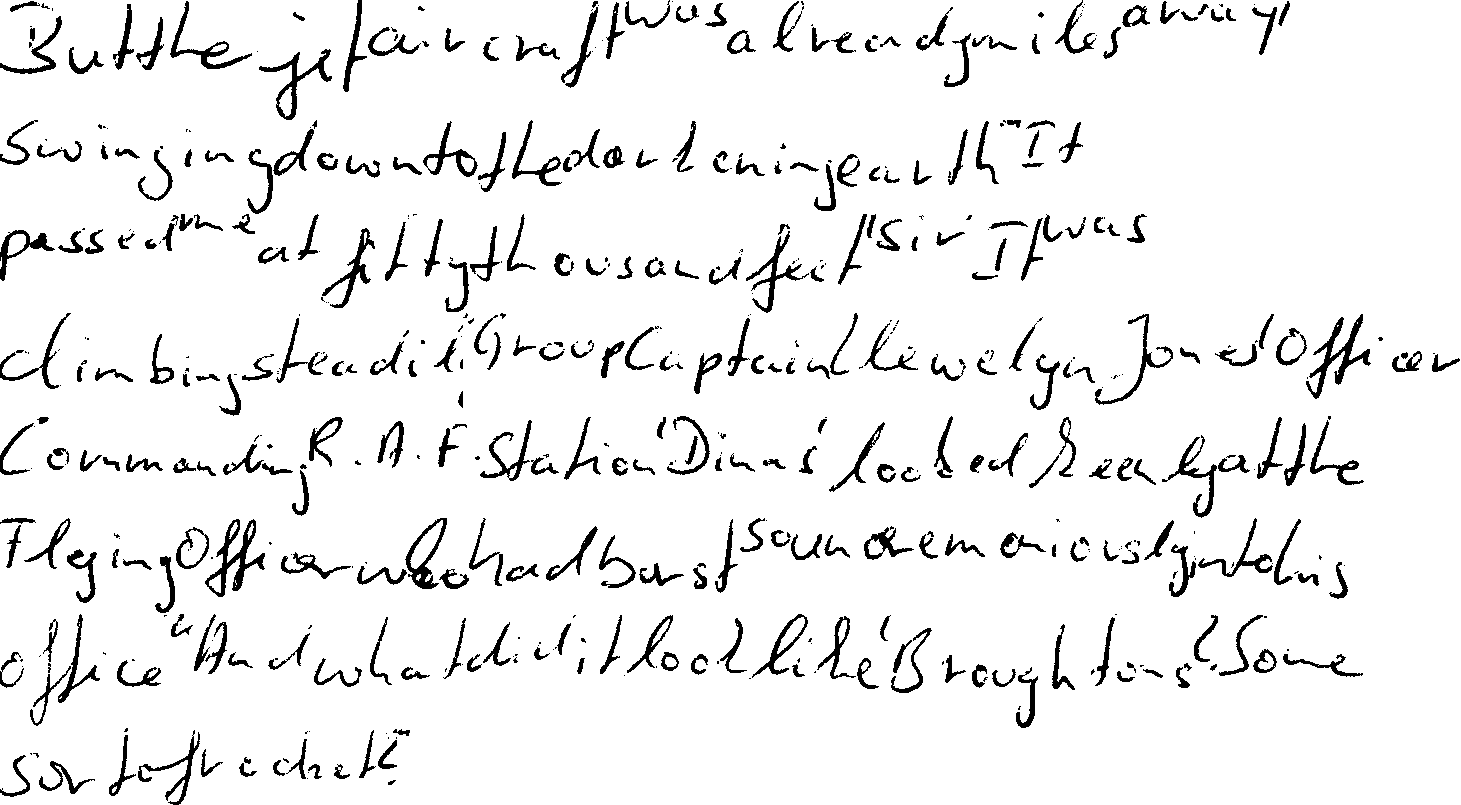 But the jet aircraft was already miles away,
swinging down to the darkening earth. "It
passed me at fifty thousand feet, sir. It was
climbing steadily." Group Captain Llewelyn Jones, Officer
Commanding, R.A.F. Station, Dinas, looked keenly at the
Flying Officer who had burst so unceremoniously into his
office. "And what did it look like, Broughton? Some
sort of rocket?